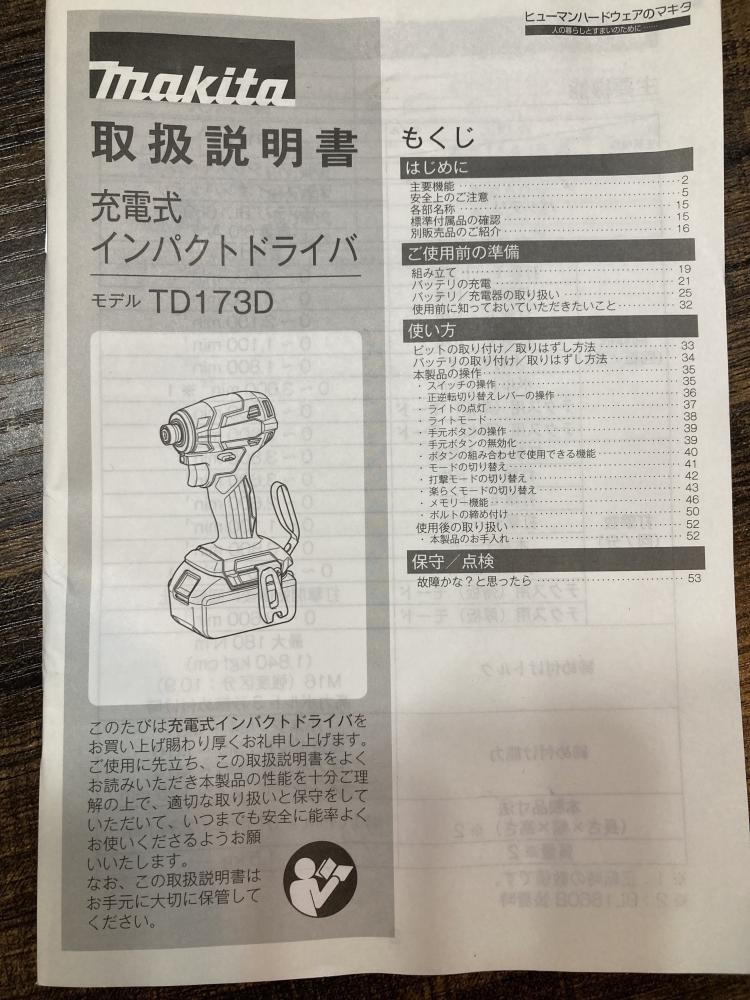 ヒューマンハードウェアのマキタ
人の暮らしとすまいのために……
makita
取扱説明書
充電式
インパクトドライバ
モデル TD173D
このたびは充電式インパクトドライバを
お買い上げ賜わり厚くお礼申し上げます。
ご使用に先立ち、この取扱説明書をよく
お読みいただき本製品の性能を十分ご理
解の上で、適切な取り扱いと保守をして
いただいて、いつまでも安全に能率よく
お使いくださるようお願
いいたします。
なお、この取扱説明書は
お手元に大切に保管して
ください。
もくじ
はじめに
主要機能 2
安全上のご注意 5
各部名称 15
標準付属品の確認 15
別販売品のご紹介 16
ご使用前の準備
組み立て 19
バッテリの充電 21
バッテリ／充電器の取り扱い 25
使用前に知っておいていただきたいこと 32
使い方
ビットの取り付け／取りはずし方法 33
バッテリの取り付け／取りはずし方法 34
本製品の操作 35
・スイッチの操作 35
・正逆転切り替えレバーの操作 36
・ライトの点灯 37
・ライトモード 38
・手元ボタンの操作 39
・手元ボタンの無効化 39
・ボタンの組み合わせで使用できる機能 40
・モードの切り替え 41
・打撃モードの切り替え 42
・楽らくモードの切り替え 43
・メモリー機能 46
・ボルトの締め付け 50
使用後の取り扱い 52
・本製品のお手入れ 52
保守／点検
故障かな？と思ったら 53